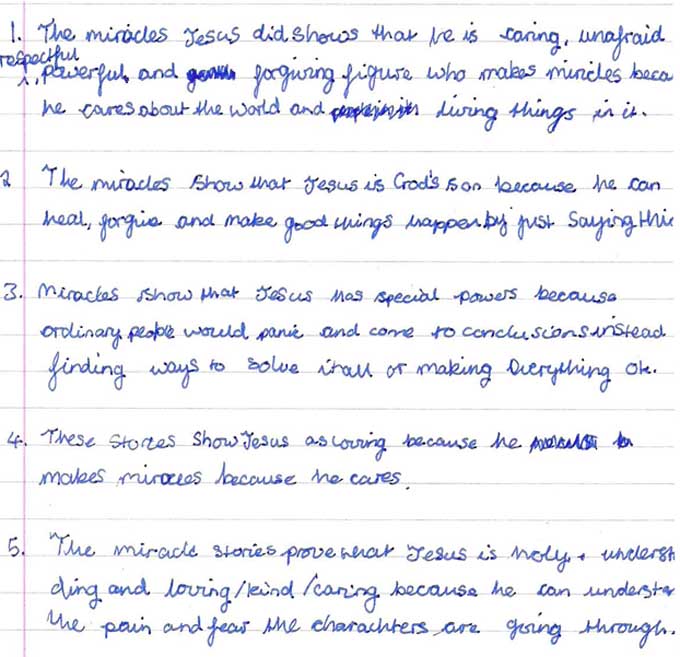 1. The miracles Jesus did shows that he is caring, unafraid
respectful
, powerful, and forgiving figure who makes miricles beca
he cares about the world and living things in it.
2 The miracles show that Jesus is God's son because he can
heal, forgive and make good things happen by just saying thi
3. Miracles show that Jesus has special powers because
ordinary people would panic and come to conclusions instead
finding ways to solve it all or making everything ok.
4. These stories show Jesus as loving because he
makes miracles because he cares.
5. The miracle stories prove that Jesus is holy, underst
ding and loving/kind/caring because he can understa
the pain and fear the charachters are going through.